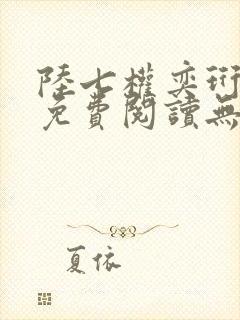 陸七權奕珩
免費閱讀無
夏依